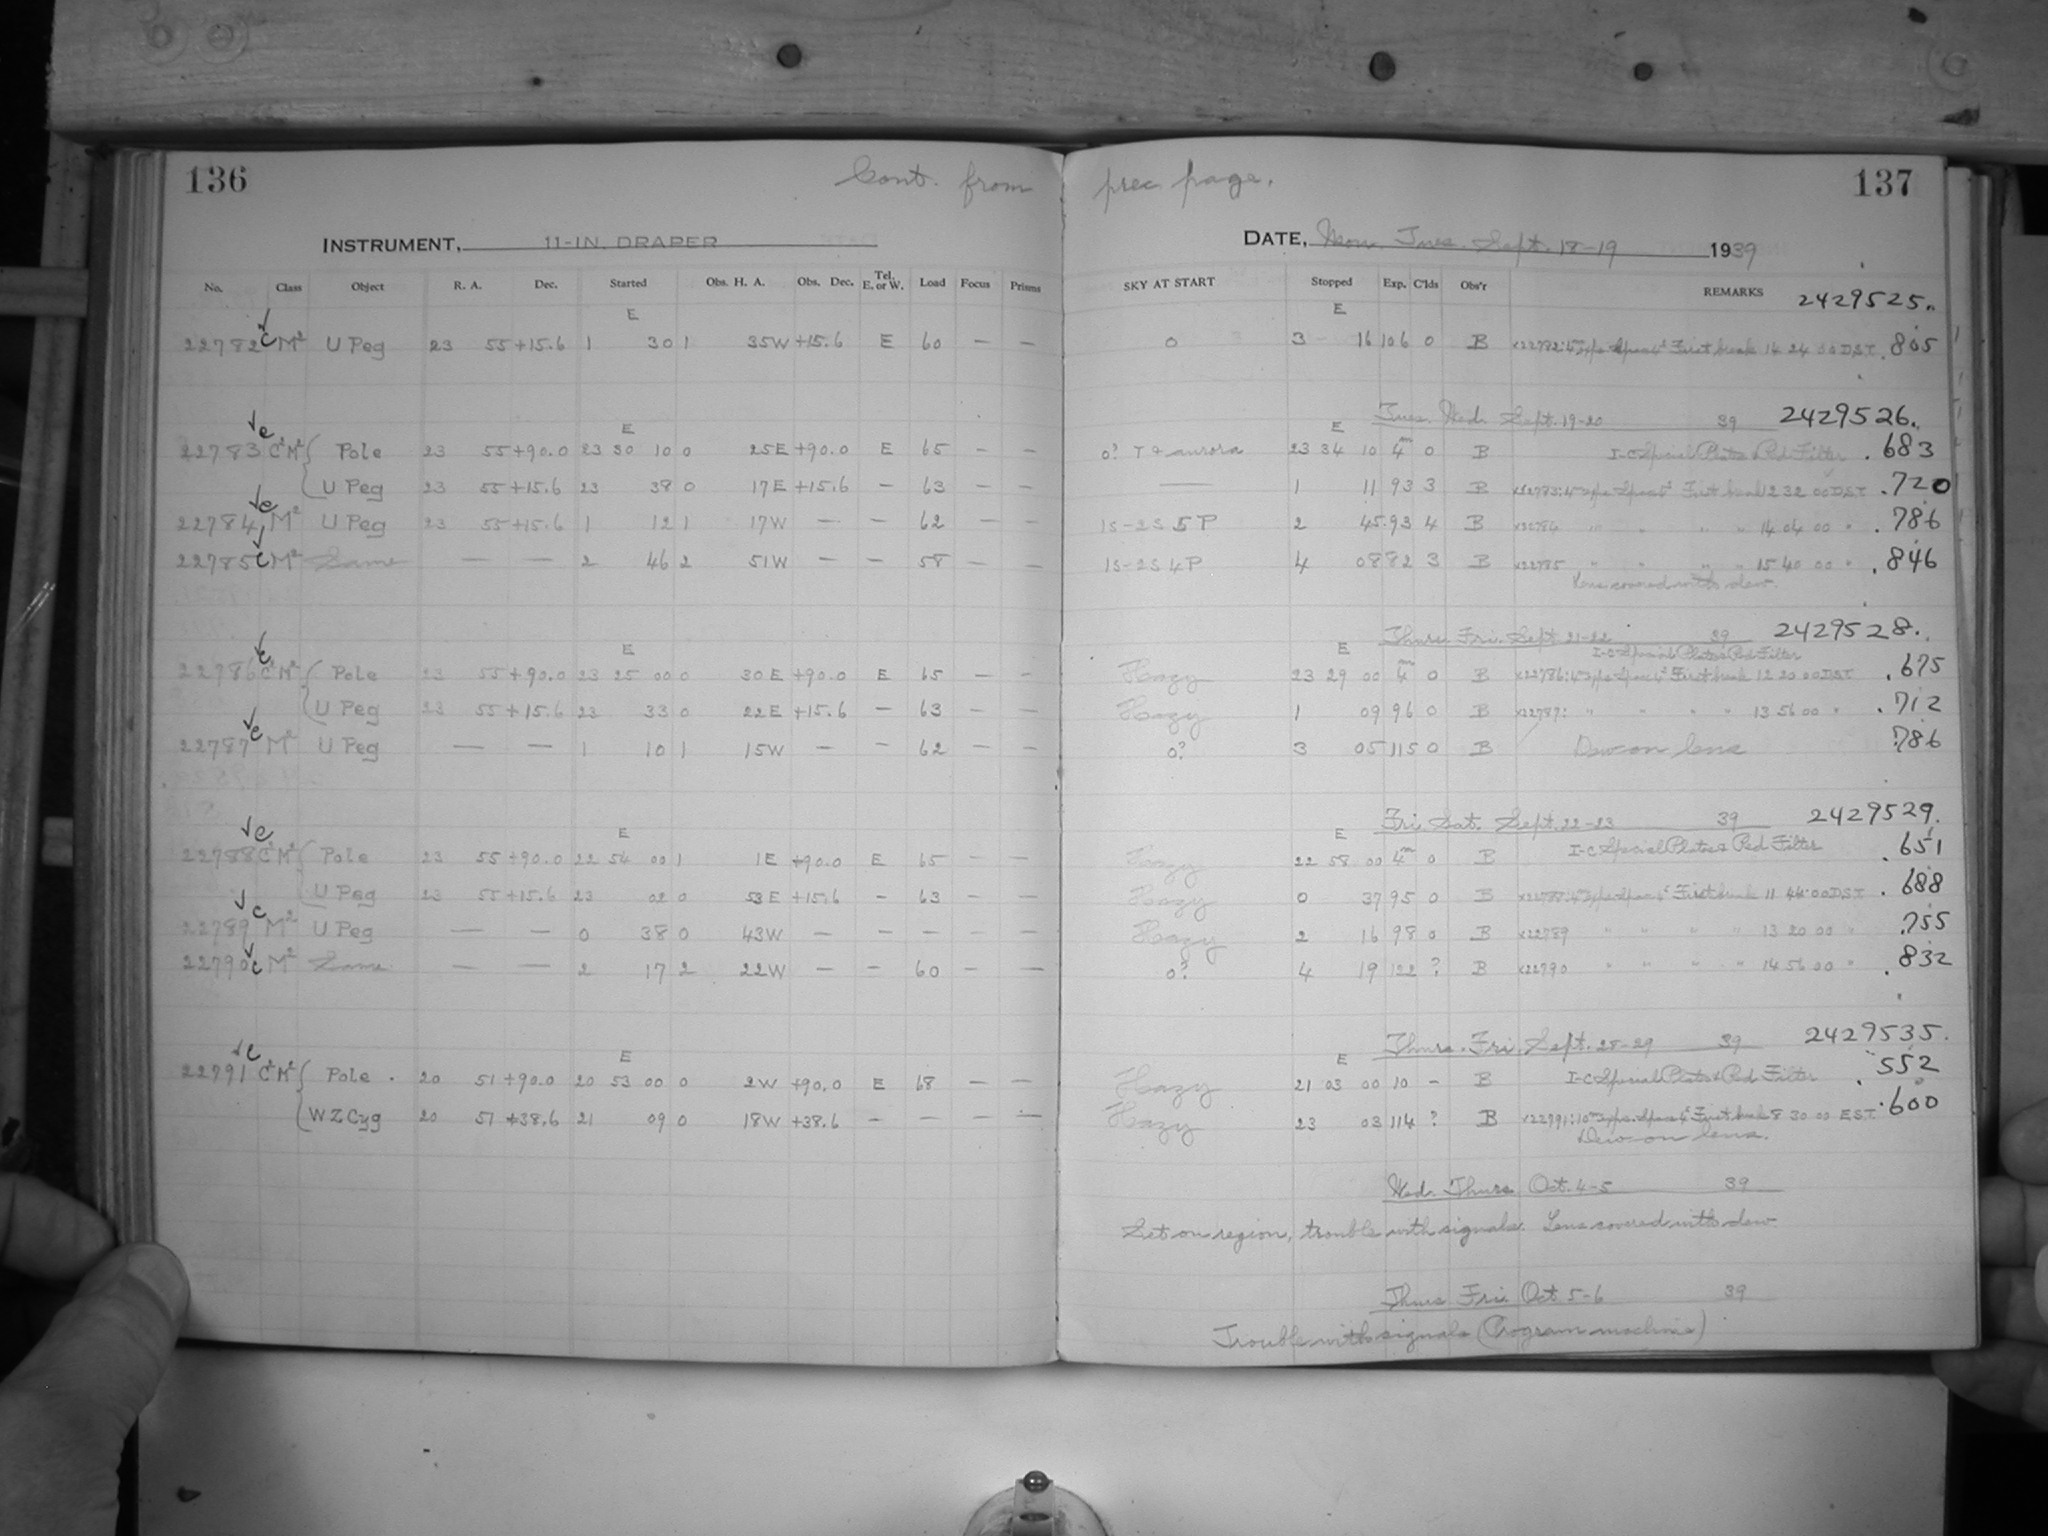 136
Cont. from prec. page.
137
INSTRUMENT, 11-IN. DRAPER
DATE, Mon. Tues. Sept. 18-19 1939
No. Class Object R. A. Dec. Started Obs. H. A. Obs. Dec. Tel. E. or W. Load Focus Prisms SKY AT START Stopped Exp. C'lds Obs'r REMARKS 2429525.
E E
22782 c M² U Peg 23 55 +15.6 1 30 1 35W +15.6 E 60 — — 0 3 16 106 0 B First break 14 24 00 DST .805
Tues. Wed. Sept. 19-20 39 2429526.
E E
22783 c C²M² { Pole 23 55 +90.0 23 30 10 0 25E +90.0 E 65 — — 0? T & aurora 23 34 10 4m 0 B I-C Special Plates & Red Filter .683
U Peg 23 55 +15.6 23 38 0 17E +15.6 — 63 — — — 1 11 93 3 B x22783: First break 12 32 00 DST .720
22784 c M² U Peg 23 55 +15.6 1 12 1 17W — — 62 — — 1S-2S 5P 2 45 93 4 B x22784 " " " " 14 04 00 " .786
22785 c M² Same — — 2 46 2 51W — — 58 — — 1S-2S 4P 4 08 82 3 B x22785 " " " " 15 40 00 " .846
Lens covered with dew.
Thurs. Fri. Sept. 21-22 39 2429528.
E E I-C Special Plates & Red Filter
22786 c C²M² { Pole 23 55 +90.0 23 25 00 0 30E +90.0 E 65 — — Hazy 23 29 00 4m 0 B x22786: First break 12 20 00 DST .675
U Peg 23 55 +15.6 23 33 0 22E +15.6 — 63 — — Hazy 1 09 96 0 B x22787: " " " " 13 56 00 " .712
22787 c M² U Peg — — 1 10 1 15W — — 62 — — 0? 3 05 115 0 B Dew on lens .786
Fri. Sat. Sept. 22-23 39 2429529.
E E
22788 c C²M² { Pole 23 55 +90.0 22 54 00 1 1E +90.0 E 65 — — Hazy 22 58 00 4m 0 B I-C Special Plates & Red Filter .651
U Peg 23 55 +15.6 23 02 0 53E +15.6 — 63 — — Hazy 0 37 95 0 B x22788: First break 11 44 00 DST .688
22789 c M² U Peg — — 0 38 0 43W — — — — — Hazy 2 16 98 0 B x22789 " " " " 13 20 00 " .755
22790 c M² Same — — 2 17 2 22W — — 60 — — 0? 4 19 122 ? B x22790 " " " " 14 56 00 " .832
Thurs. Fri. Sept. 28-29 39 2429535.
E E
22791 c C²M² { Pole 20 51 +90.0 20 53 00 0 2W +90.0 E 68 — — Hazy 21 03 00 10 — B I-C Special Plates & Red Filter .552
WZ Cyg 20 51 +38.6 21 09 0 18W +38.6 — — — — Hazy 23 03 114 ? B x22791: First break 8 30 00 EST .600
Dew on lens.
Wed. Thurs. Oct. 4-5 39
Set on region, trouble with signals. Lens covered with dew
Thurs Fri. Oct 5-6 39
Trouble with signals (Program machine)